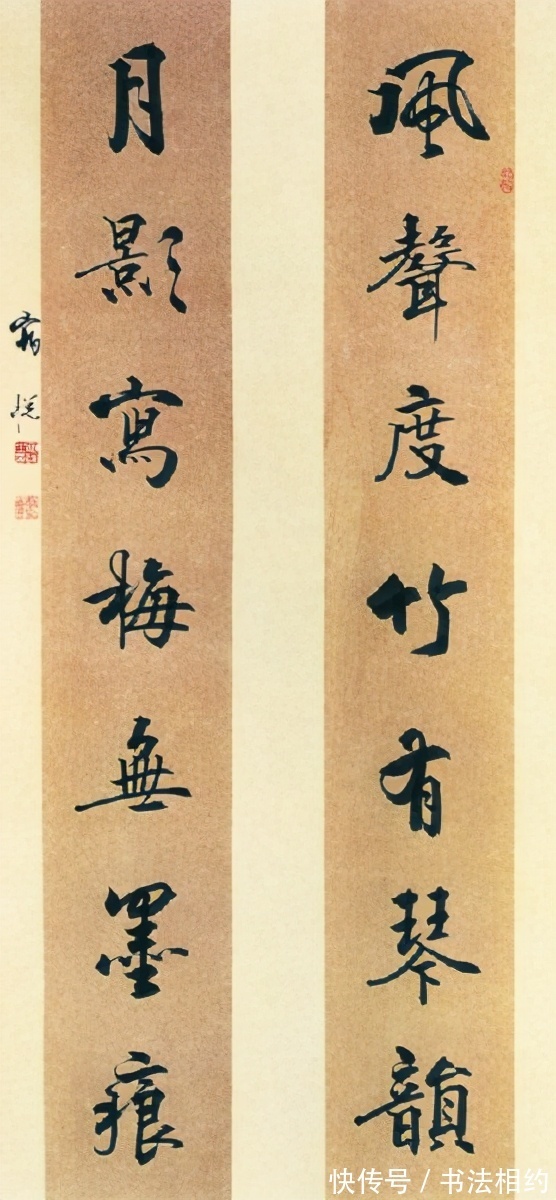 風聲度竹有琴韻
月影寫梅無墨痕
宿悦
快传号 / 书法相约